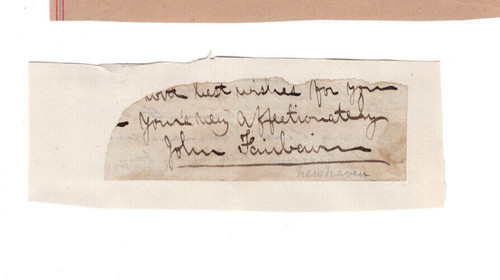 with best wishes for you
yours very affectionately
John Fairbairn
newhaven